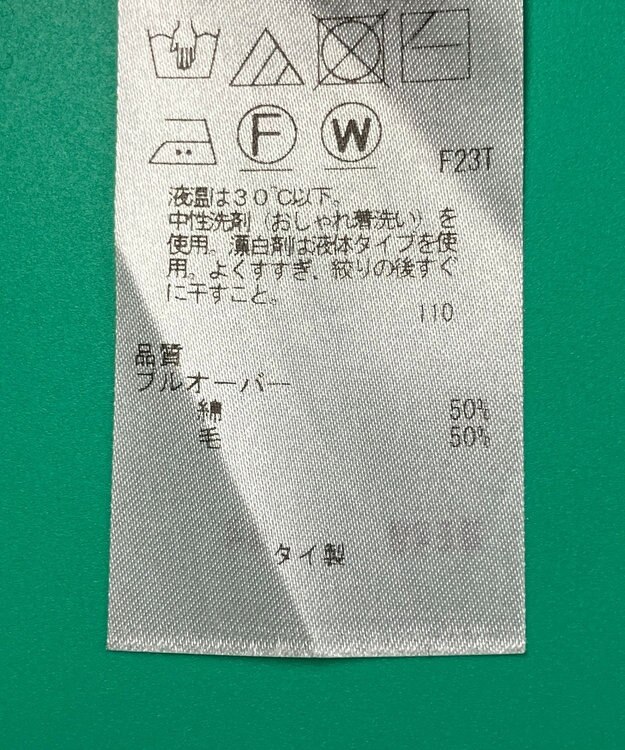 F W
F23T
液温は30℃以下。
中性洗剤（おしゃれ着洗い）を
使用。漂白剤は液体タイプを使
用。よくすすぎ、絞りの後すぐ
に干すこと。
110
品質
プルオーバー
綿 50%
毛 50%
タイ製